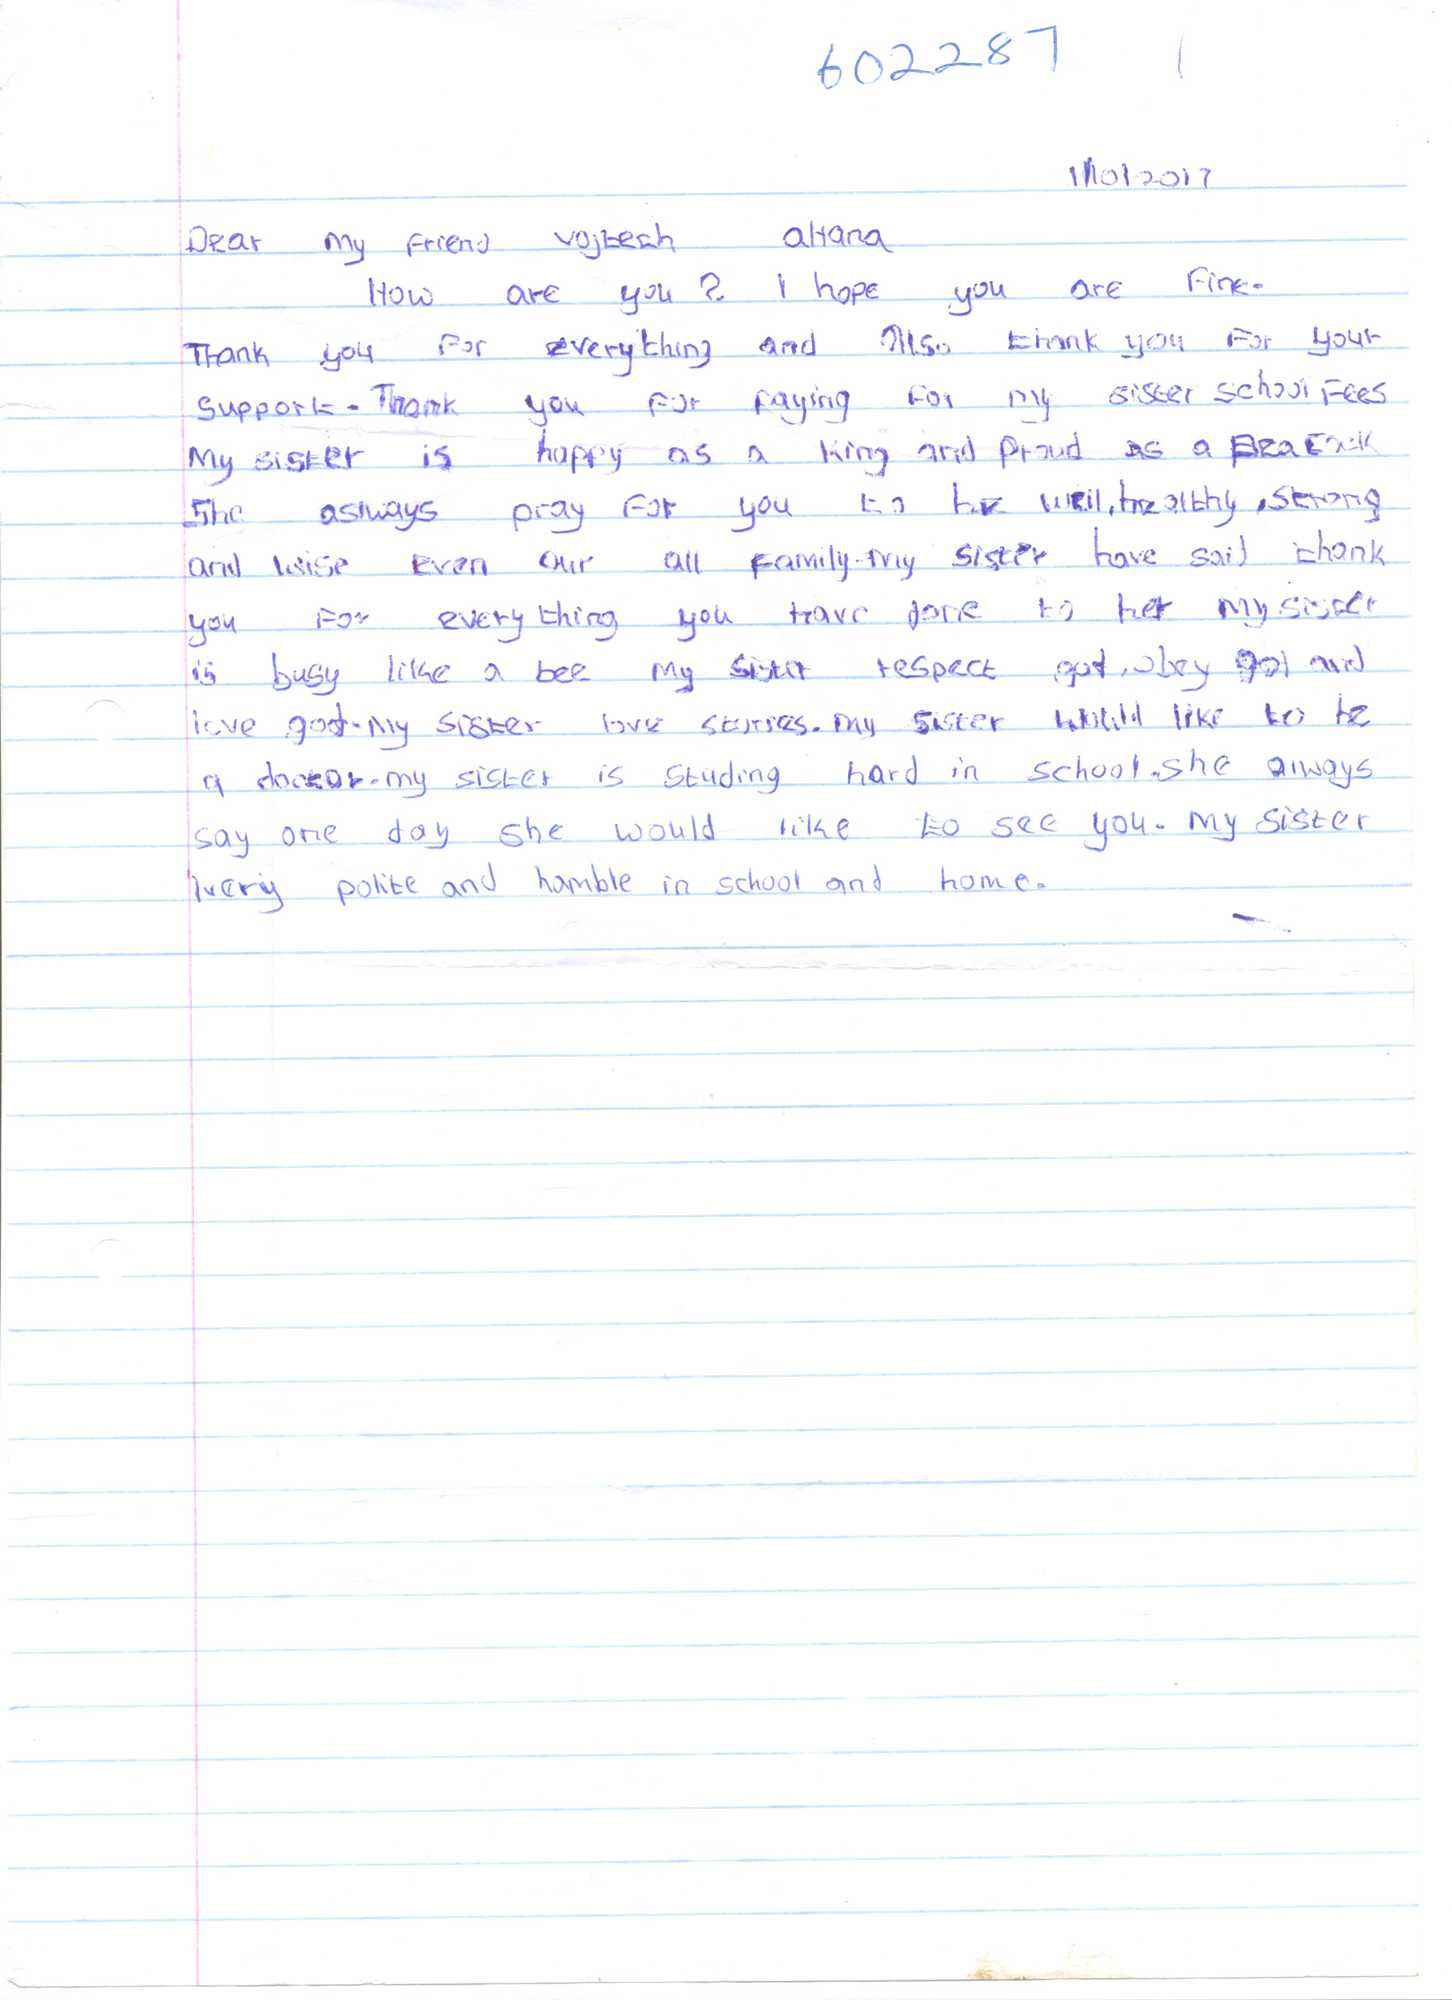 602287 1
Dear my Friend vojtech altana
How are you? I hope you are Fine.
Thank you For everything and Also thank you For your
support. Thank you For paying For my sister school Fees
My sister is happy as a king and proud as a
She aslways pray For you to be well, healthy, strong
and wise even our all Family. my sister have said thank
you For everything you have done to her my sister
is busy like a bee my sister respect god, obey god and
love god. my sister love stories. my sister would like to be
a doctor. my sister is studing hard in school. she always
say one day she would like to see you. my sister
very polite and hamble in school and home.